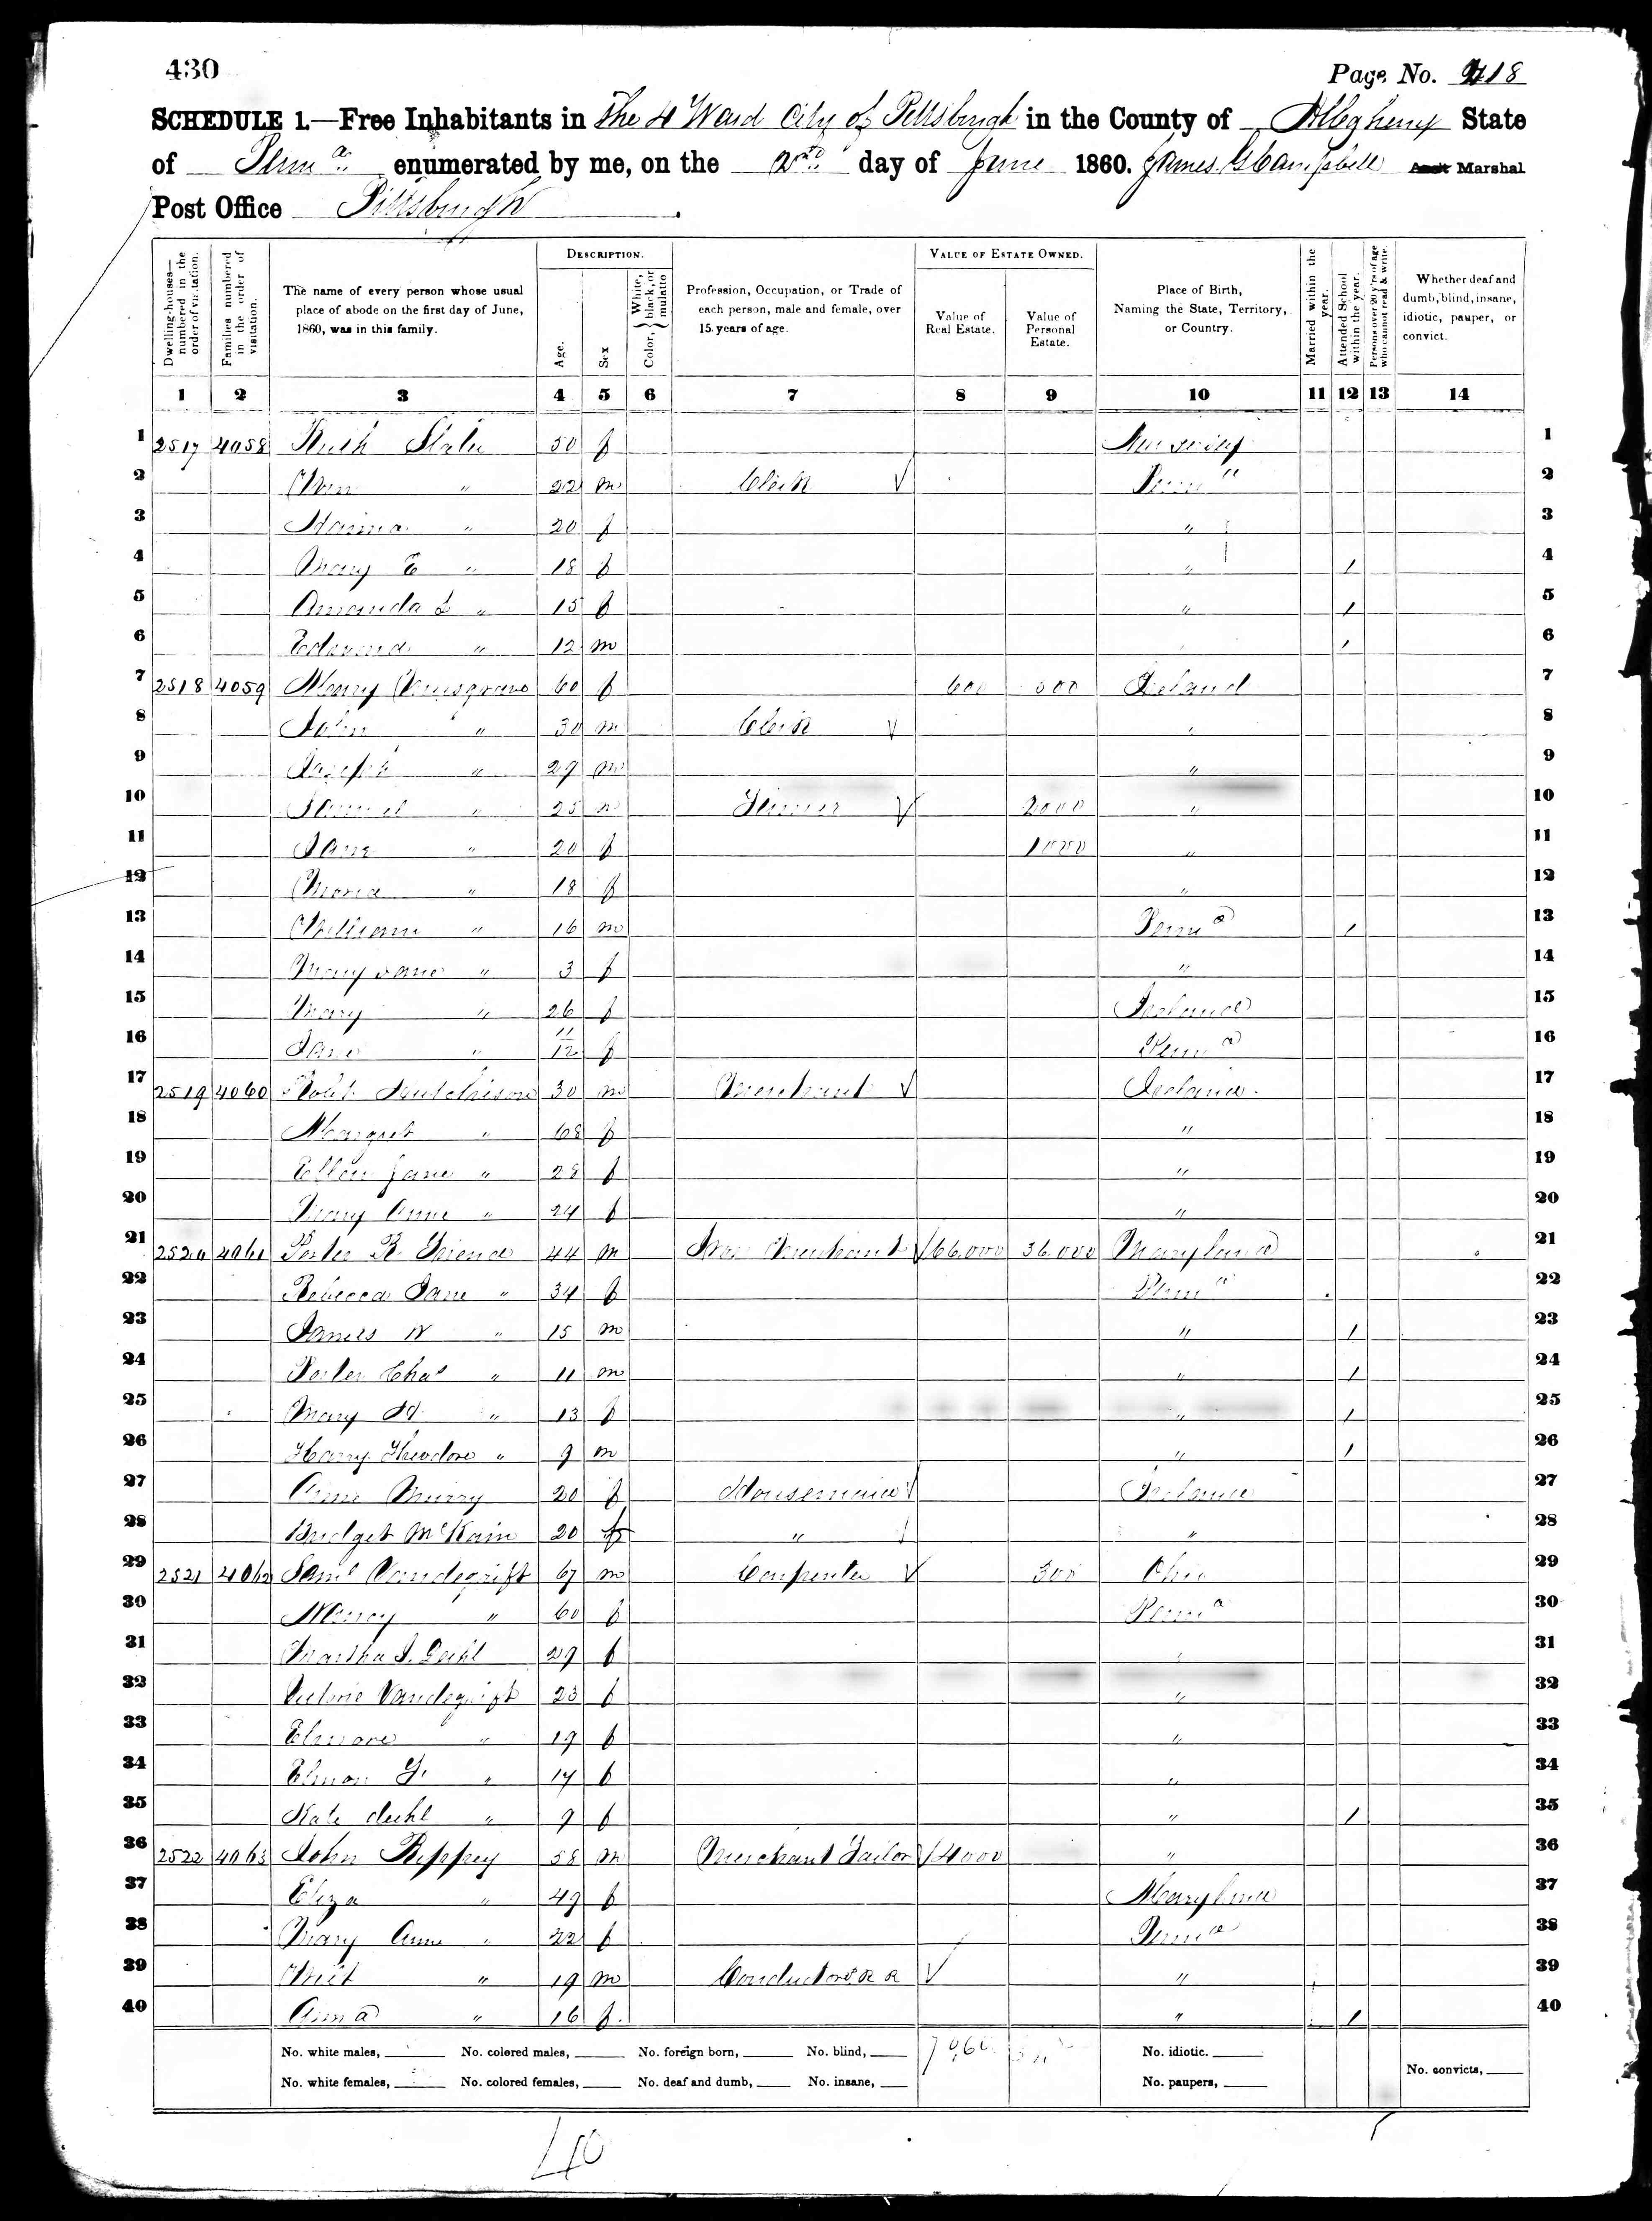 430
Page No. 418
SCHEDULE 1.—Free Inhabitants in The 4 Ward City of Pittsburgh in the County of Allegheny State
of Penna. enumerated by me, on the day of June 1860. James G Campbell Asst Marshal
Post Office Pittsburgh.
Dwelling-houses—numbered in the order of visitation.
Families numbered in the order of visitation.
The name of every person whose usual place of abode on the first day of June, 1860, was in this family.
DESCRIPTION.
Age.
Sex
Color, { White, black, or mulatto
Profession, Occupation, or Trade of each person, male and female, over 15 years of age.
VALUE OF ESTATE OWNED.
Value of Real Estate.
Value of Personal Estate.
Place of Birth, Naming the State, Territory, or Country.
Married within the year.
Attended School within the year.
Persons over 20 y'rs of age who cannot read & write.
Whether deaf and dumb, blind, insane, idiotic, pauper, or convict.
1 2 3 4 5 6 7 8 9 10 11 12 13 14
1 2517 4058 Ruth 50 f 1
2 " 22 m Clerk Penna 2
3 " 20 f " 3
4 Mary E " 18 f " / 4
5 Amanda L " 15 f " / 5
6 Edward " 12 m / 6
7 2518 4059 Mary Musgrave 60 f 600 300 Ireland 7
8 John " 30 m Clerk " 8
9 Joseph " 29 m " 9
10 Samuel " 25 m 2000 " 10
11 Jane " 20 f 1000 " 11
12 Maria " 18 f " 12
13 William " 16 m Penna / 13
14 Mary Jane " 3 f " 14
15 Mary " 26 f Ireland 15
16 Jane " 11/12 f Penna 16
17 2519 4060 Robt Hutchison 30 m Merchant Ireland 17
18 Margret " 68 f " 18
19 Ellen Jane " 28 f " 19
20 Mary Anne " 24 f " 20
21 2520 4061 Porter R. Friend 44 m Iron Merchant 66,000 36,000 Maryland 21
22 Rebecca Jane " 34 f Penna 22
23 James W " 15 m " / 23
24 Porter Chas " 11 m " / 24
25 Mary H. " 13 f " / 25
26 Harry Theodore " 9 m " / 26
27 Anne Murry 20 f Housemaid Ireland 27
28 Bridget McKain 20 f " " 28
29 2521 4062 Saml Vandegrift 67 m Carpenter 300 Ohio 29
30 Nancy " 60 f Penna 30
31 Martha J. Deihl 29 f " 31
32 Vandegrift 23 f " 32
33 " 19 f " 33
34 " 17 f " 34
35 Kate deihl " 9 f " / 35
36 2522 4063 John Reppey 58 m Merchant Tailor 4000 " 36
37 Eliza " 49 f Maryland 37
38 Mary Anne " 22 f Penna 38
39 " 19 m Conductor R R " 39
40 Anna " 16 f. " / 40
No. white males, No. colored males, No. foreign born, No. blind, No. idiotic.
No. white females, No. colored females, No. deaf and dumb, No. insane, No. paupers, No. convicts,
40